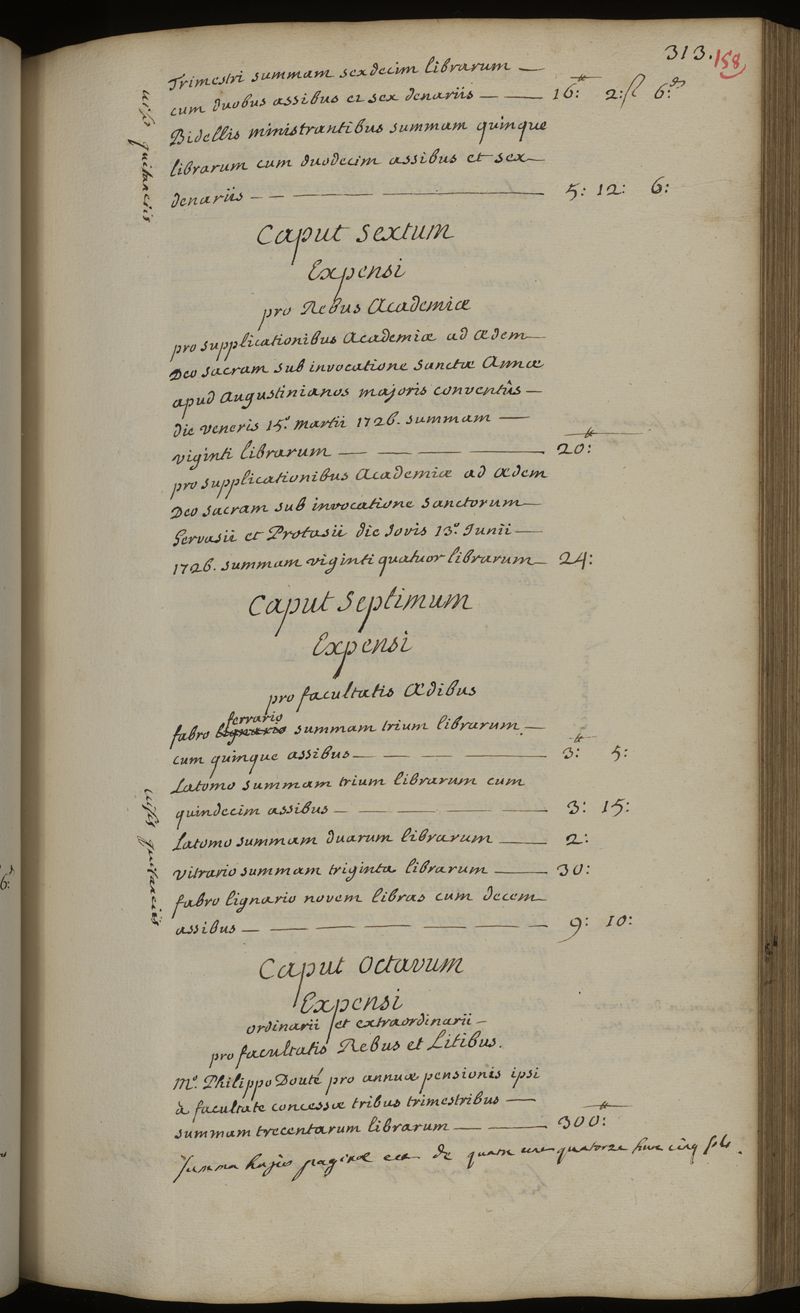 313. 158
Trimestri summam sexdecim librarum —
cum duobus assibus et sex denariis — — 16:tt 2:ſ 6:d
Bidellis ministrantibus summam quinque
librarum cum duodecim assibus et sex —
denariis — — — — — 5: 12: 6:
visis quitanciis
Caput Sextum
Expensi
pro Rebus Academiæ
pro supplicationibus Academiæ ad ædem —
Deo sacram sub invocatione Sanctæ Annæ
apud Augustinianos majoris conventûs —
die veneris 15.a martii 1726. summam —
viginti librarum — — — — 20:tt
pro supplicationibus Academiæ ad ædem
Deo sacram sub invocatione Sanctorum —
Gervasii et Protasii die Jovis 13.a Junii —
1726. summam viginti quatuor librarum — 24:
Caput Septimum
Expensi
pro facultatis Ædibus
ferrario
fabro lignario summam trium librarum. —
cum quinque assibus — — — — 3:tt 5:
Latomo summam trium librarum cum
quindecim assibus — — — — 3: 15:
Latomo summam duarum librarum — 2:
vitrario summam triginta librarum — 30:
fabro lignario novem libras cum decem —
assibus — — — — — — 9: 10:
visis quitanciis
Caput Octavum
Expensi
ordinarii et extraordinarii —
pro facultatis Rebus et Litibus.
M.o Philippo Douté pro annuæ pensionis ipsi
à facultate concessæ tribus trimestribus —
summam trecentarum librarum — — 300:tt
Summa hujus paginæ est de quatorze livre cinq sols.